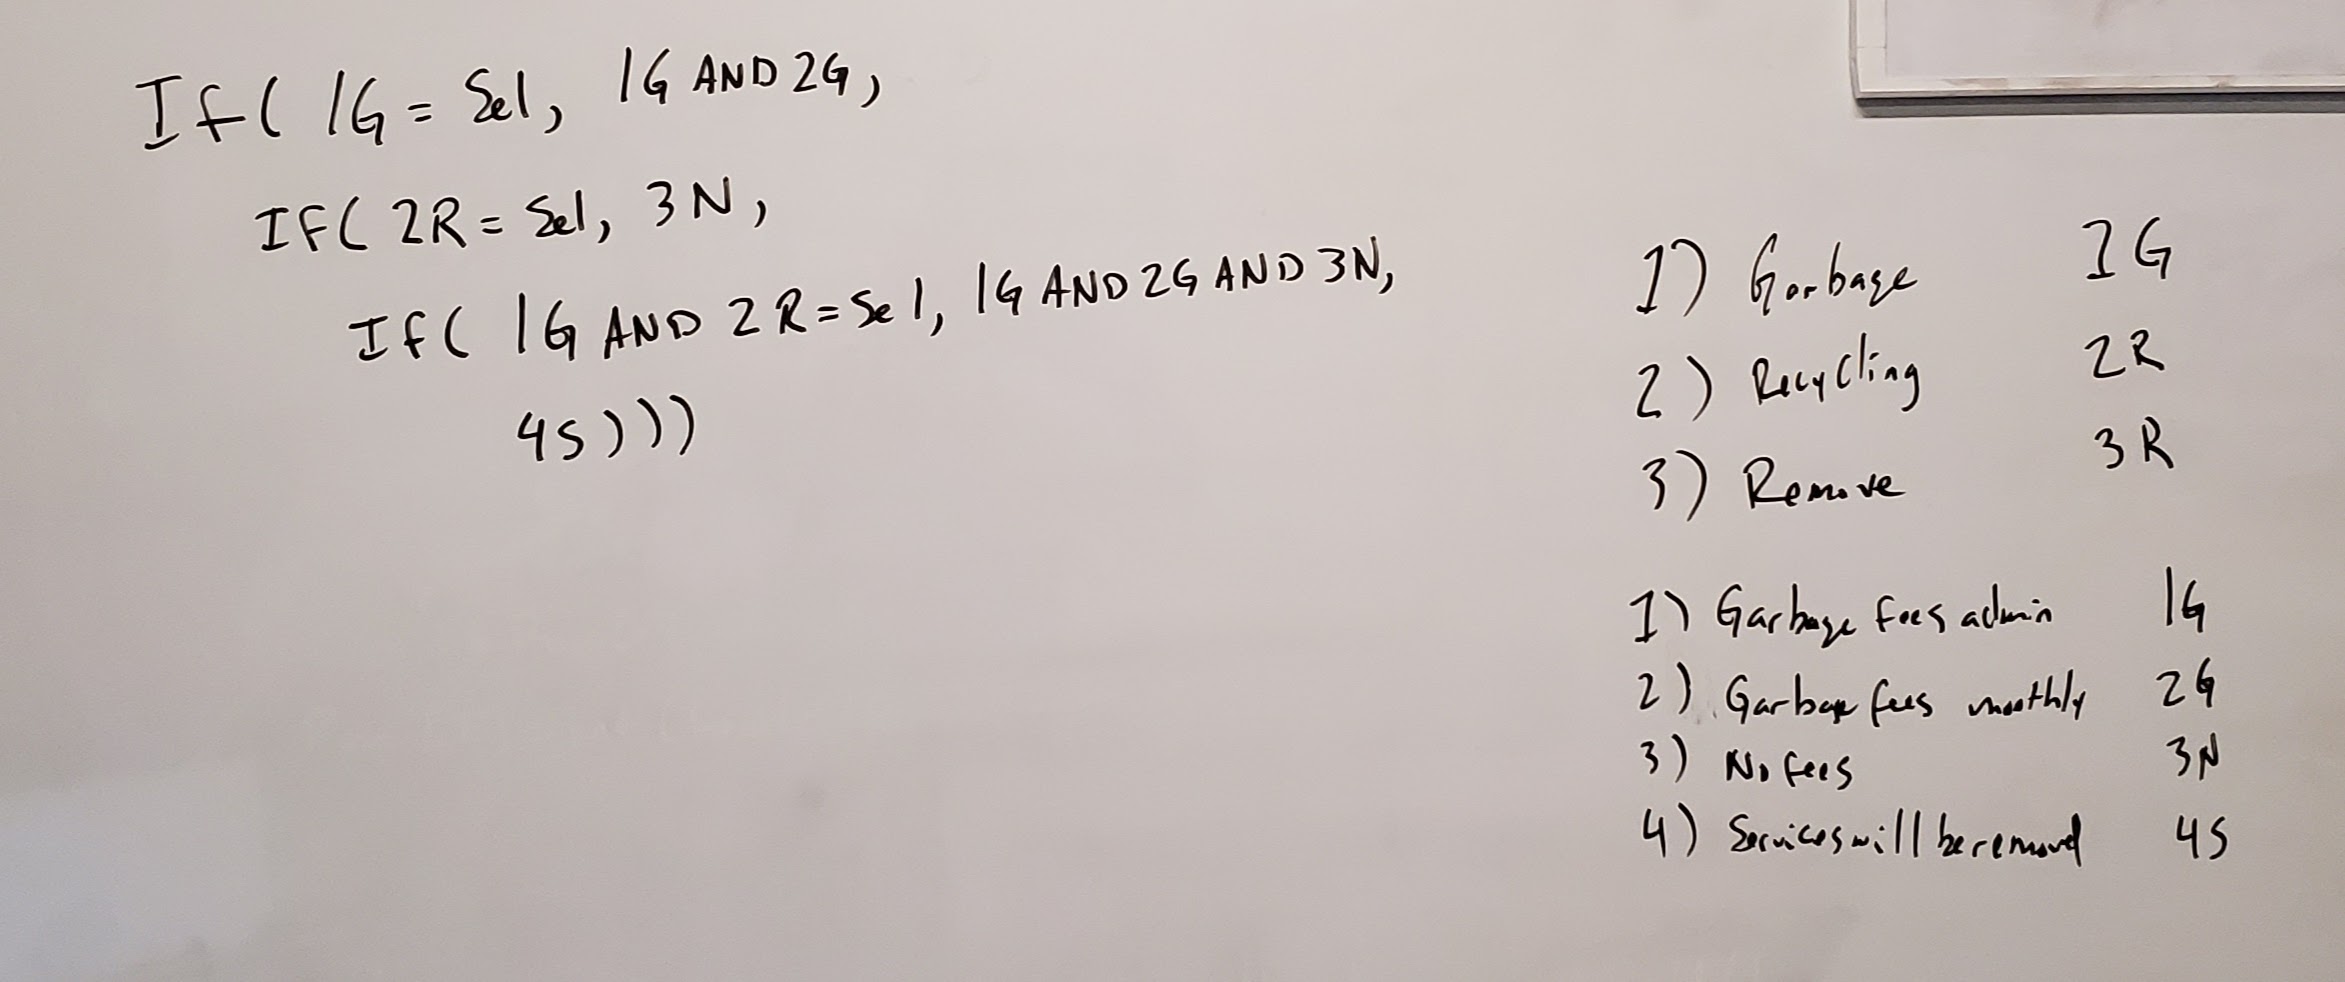 If( 1G = Sel, 1G AND 2G,
IF( 2R = Sel, 3N,
If( 1G AND 2R = Sel, 1G AND 2G AND 3N,
4S)))
1) Garbage 1G
2) Recycling 2R
3) Remove 3R
1) Garbage fees admin 1G
2) Garbage fees monthly 2G
3) No fees 3N
4) Services will be removed 4S